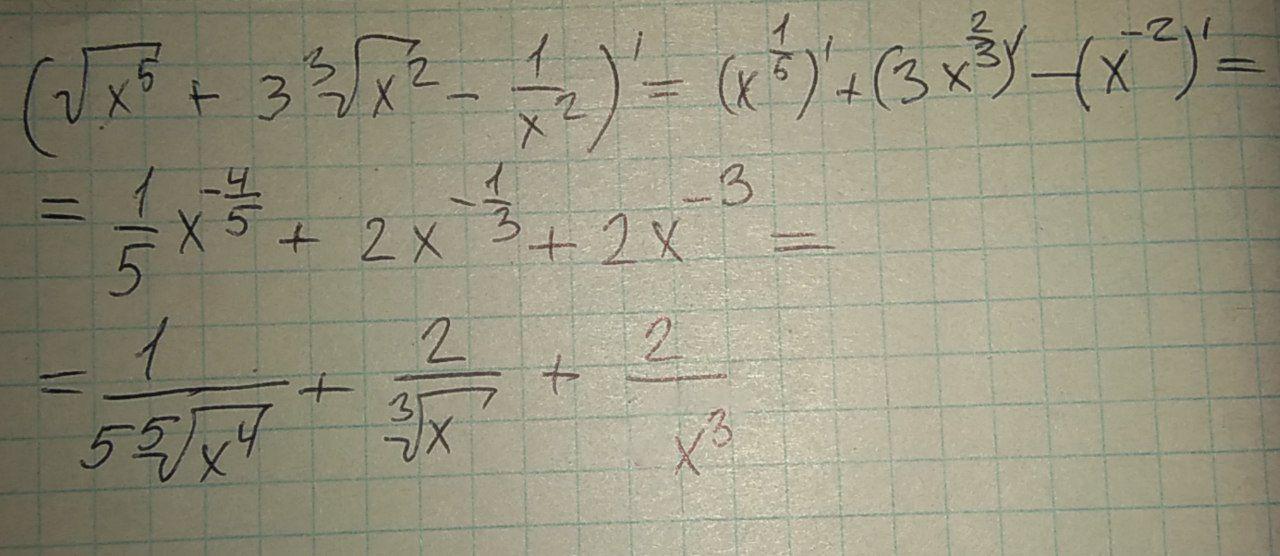 (√x⁵ + 3∛x² − 1/x²)' = (x^(1/5))' + (3x^(2/3))' − (x⁻²)' =
= 1/5 x^(−4/5) + 2x^(−1/3) + 2x⁻³ =
= 1/(5 ⁵√x⁴) + 2/∛x + 2/x³